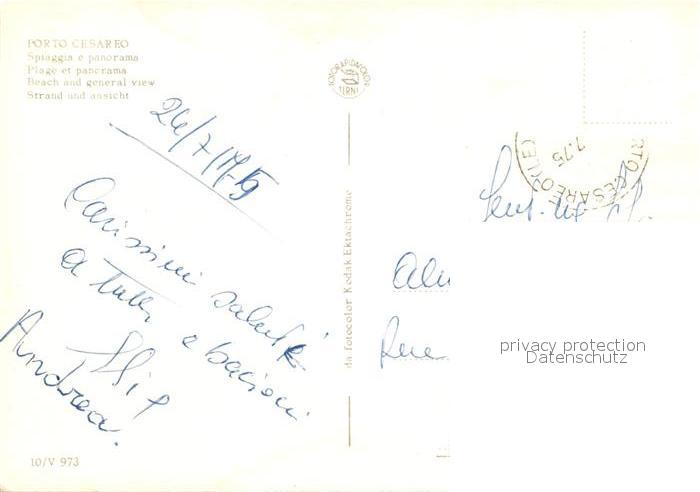 PORTO CESAREO
Spiaggia e panorama
Plage et panorama
Beach and general view
Strand und ansicht
FOTORAPIDACOLOR
TERNI
RTO CESAREO (LE)
7.75
26/7/1975
Carissimi saluti
a tutti e bacioni
Andrea.
da fotocolor Kodak Ektachrome
privacy protection
Datenschutz
10/V 973